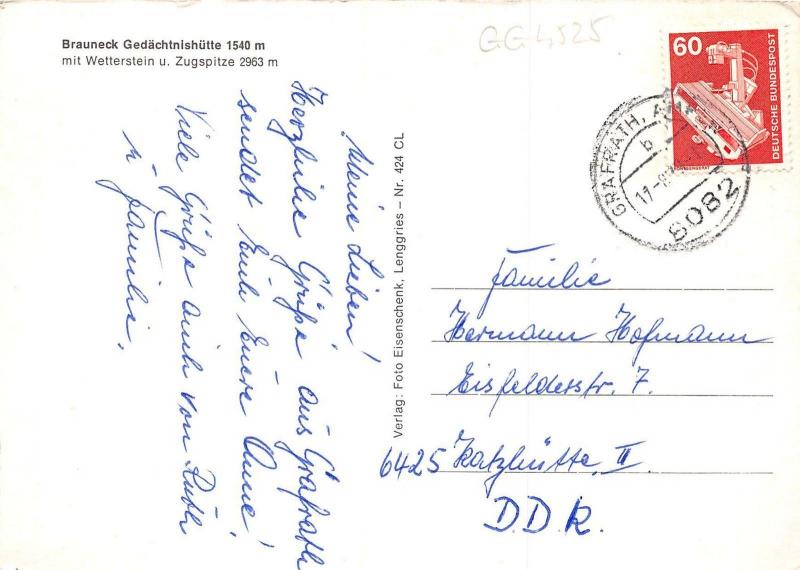 Brauneck Gedächtnishütte 1540 m
mit Wetterstein u. Zugspitze 2963 m
GG4525
60
DEUTSCHE BUNDESPOST
GRAFRATH,
b
8082
Meine Lieben!
Herzliche Grüße aus Grafrath
sendet Euch Euere Anne!
Viele Grüße auch von Ruth
u. Familie.
Verlag: Foto Eisenschenk, Lenggries – Nr. 424 CL
Familie
Hermann Hofmann
Eisfelderstr. 7.
6425 Katzhütte II
D.D.R.